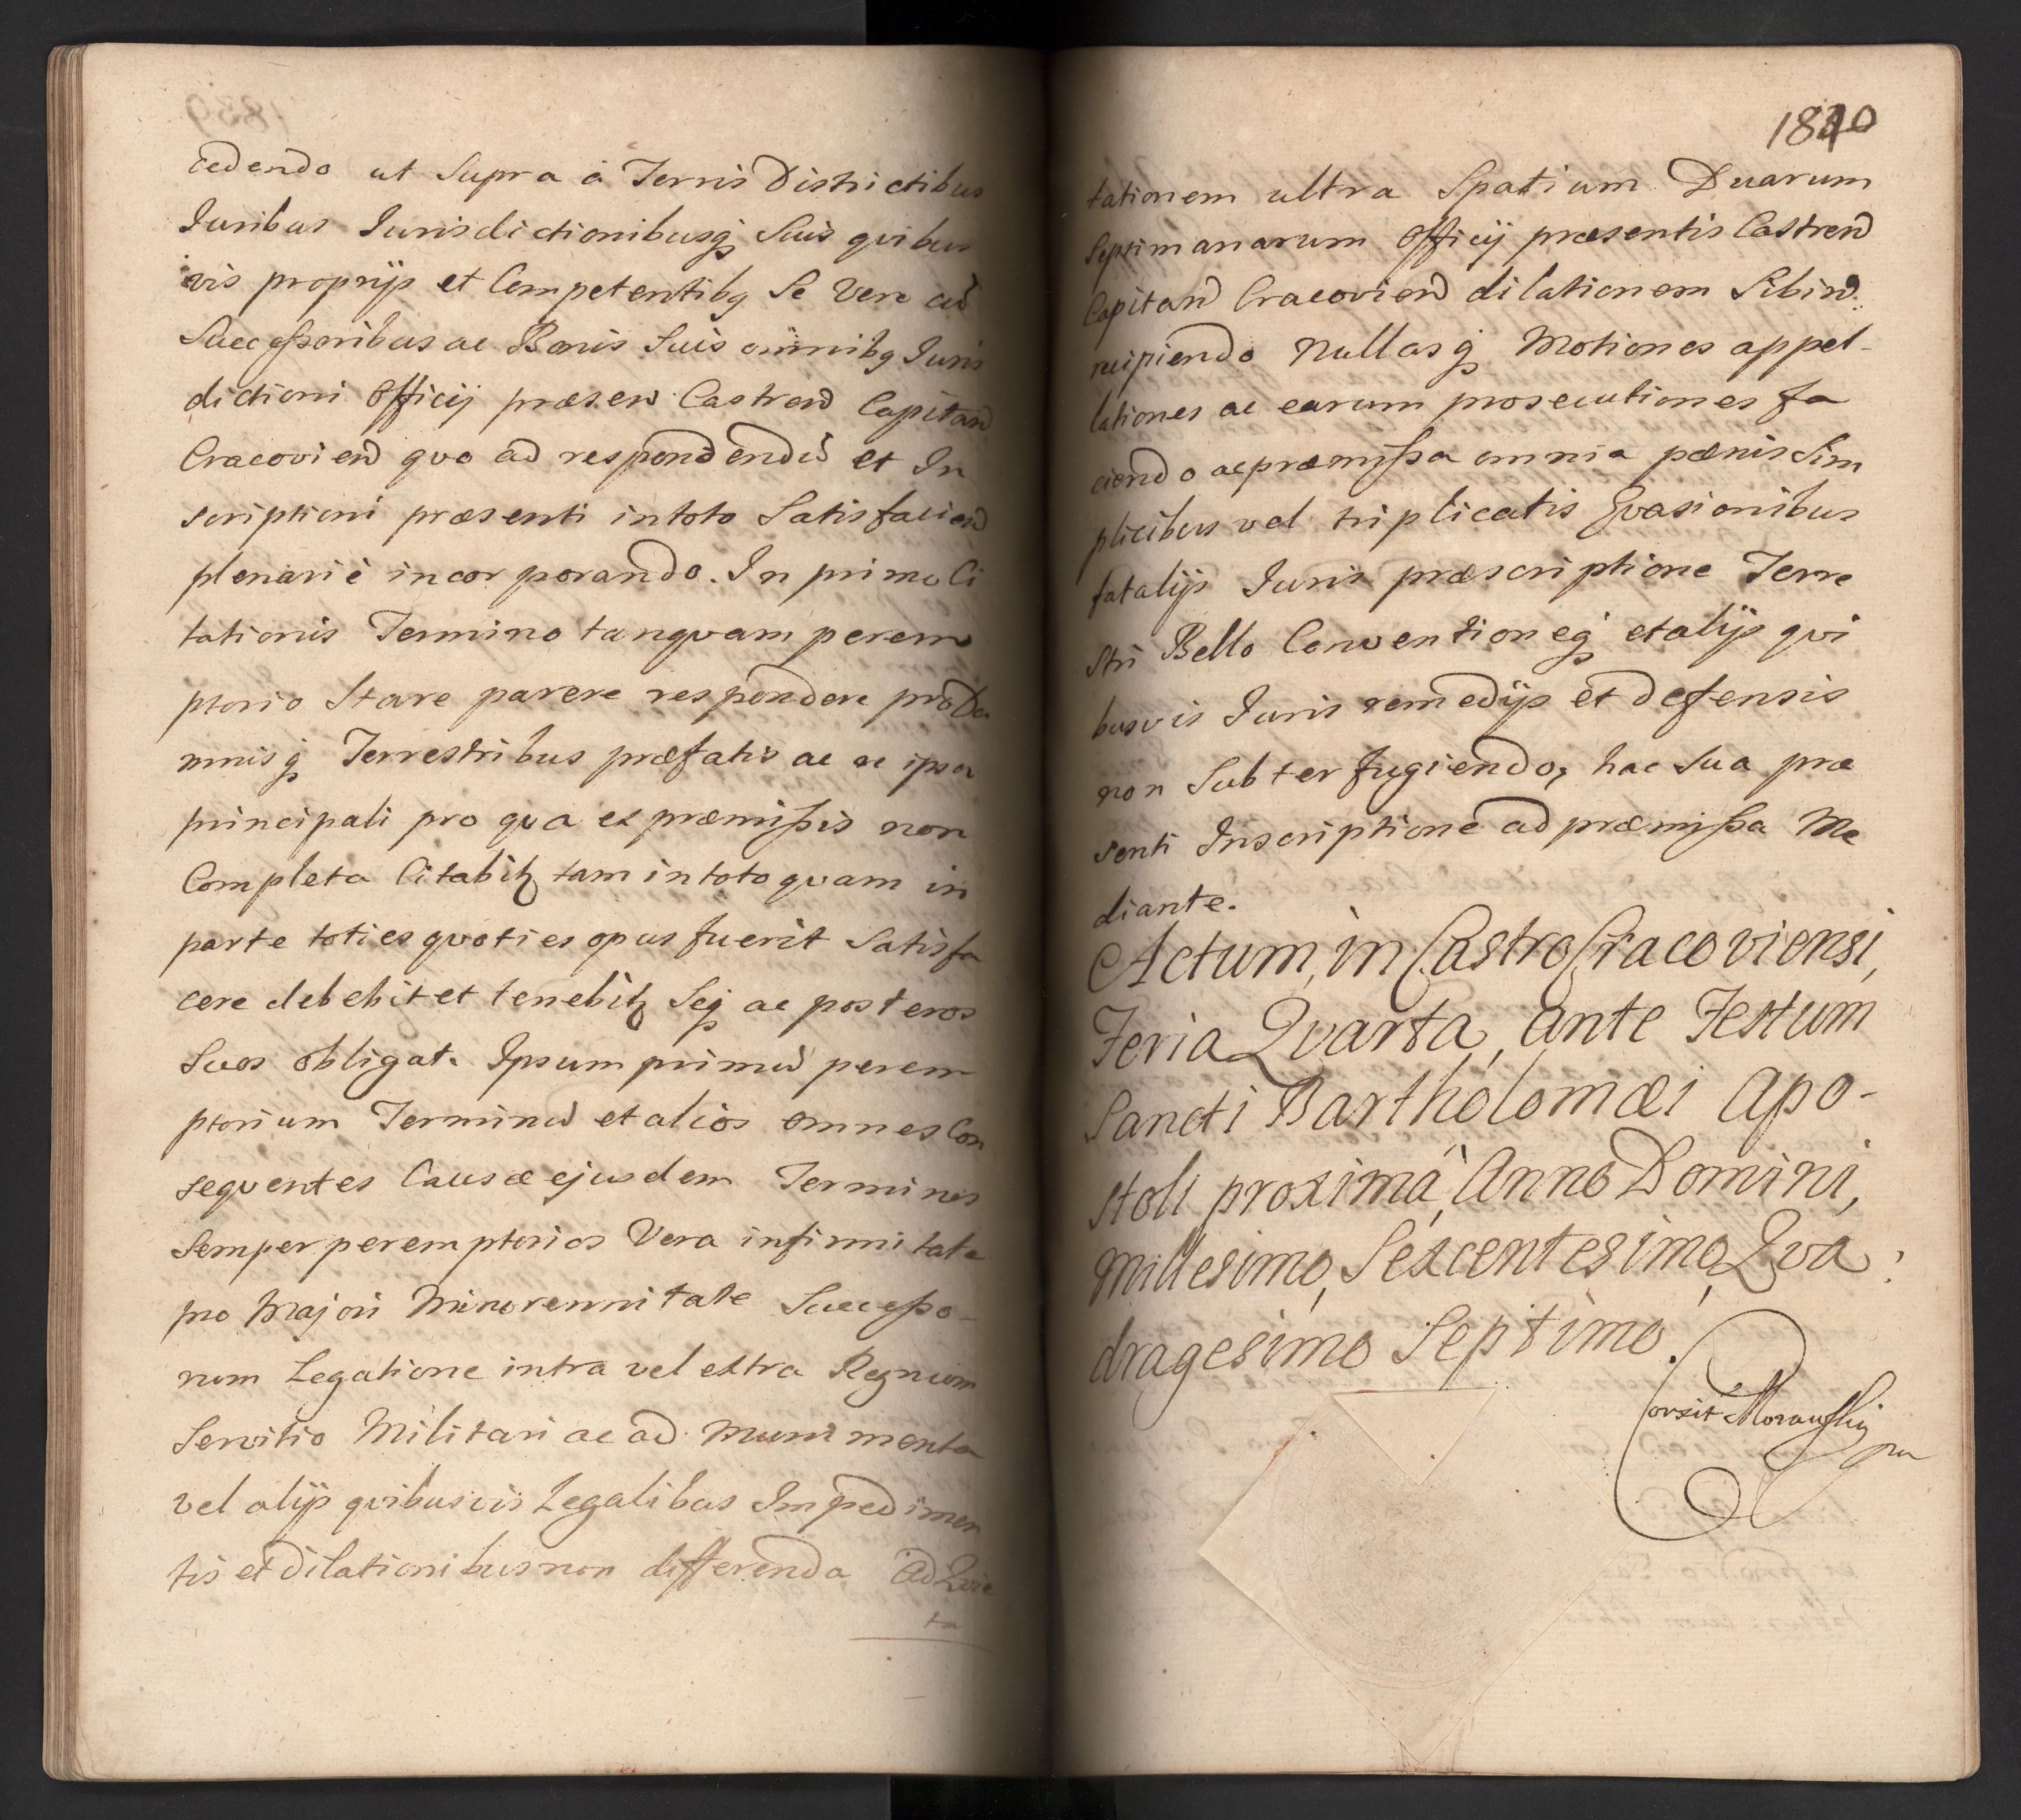 cedendo ut Supra à Terris Districtibus
Juribus Jurisdictionibusq Suis qvibus
vis proprijs et Competentibq Se Vero ac
Successoribus ac Bonis Suis omnibq Juris
dictioni Officij præsen Castren Capitan
Cracovien qvo ad respondendũ et In
scriptioni præsenti intoto Satisfacien
plenariè incorporando. In primo Ci
tationis Termino tanqvam perem
ptorio Stare parere respondere pro Da
mnisq Terrestribus præfatis ac re ipsa
principali pro qva ex præmissis non
Completa Citabitz tam intoto qvam in
parte toties qvoties opus fuerit Satisfa
cere debebit et tenebitz Seq ac posteros
Suos obligat. Ipsum primũ perem
ptorium Terminũ et alios omnes Con
seqventes Causæ ejusdem Terminos
Semper peremptorios Vera infirmitate
pro Majori Minorennitate Successo-
rum Legatione intra vel extra Regnum
Servitio Militari ac ad Munimenta
vel alijs qvibusvis Legalibus Impedimen
tis et dilationibus non differenda Ad Qvie
ta
1840
tationem ultra Spatium Duarum
Septimanarum Officij præsentis Castren
Capitan Cracovien dilationem Sibi
recipiendo Nullasq Motiones appel-
lationes ac earum prosecutiones fa
ciendo ac præmissa omnia pænis Sim
plicibus vel triplicatis Evasionibus
fatalijs Juris præscriptione Terre
stri Bello Conventioneq et alijs qvi
busvis Juris remedijs et defensis
non Subterfugiendo, hac Sua præ
senti Inscriptione ad præmissa Me
diante.
Actum, in Castro Cracoviensi,
Feria Qvarta, ante Festum
Sancti Bartholomæi Apo-
stoli proxima, Anno Domini,
Millesimo, Sexcentesimo, Qva:
dragesimo Septimo.
Corxit